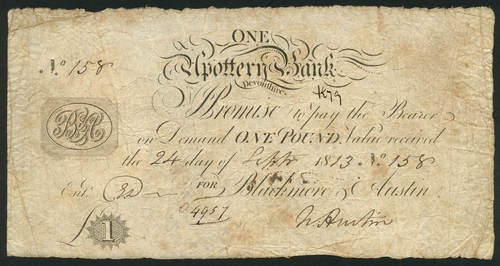 ONE
Nº 158
Upottery Bank
Devonshire
I Promise to pay the Bearer
on Demand ONE POUND, Value received
the 24 day of Septr 1813 Nº 158
Entd.
FOR Blackmore & Austin.
4957
£1